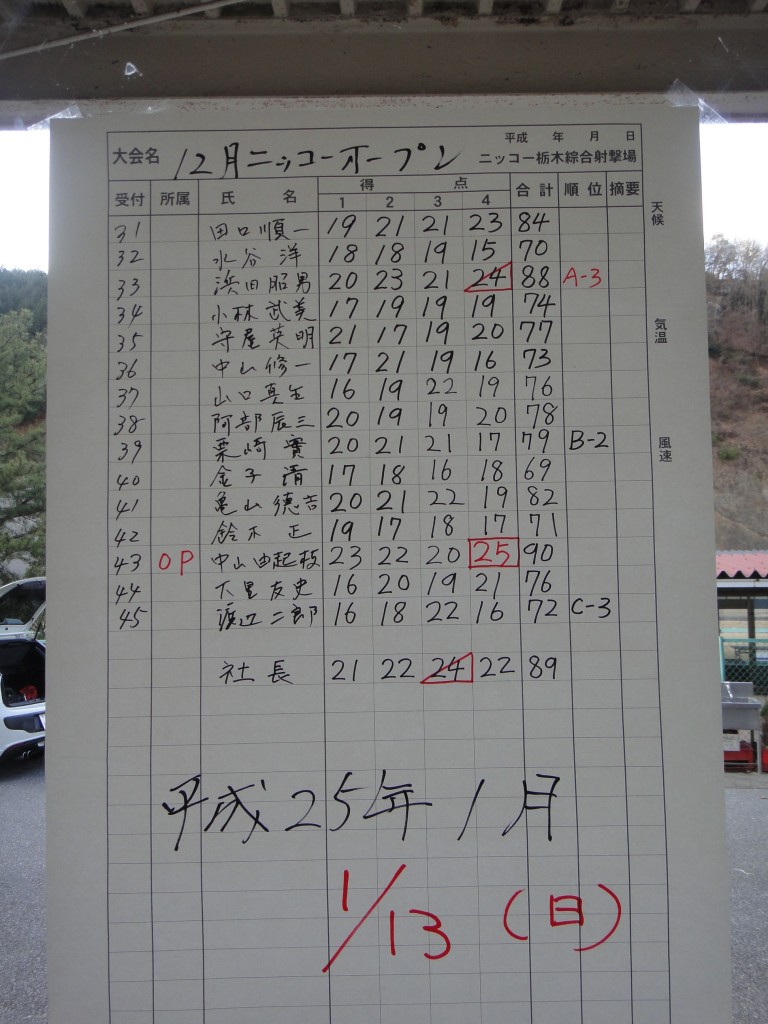 平成 年 月 日
大会名 12月ニッコーオープン ニッコー栃木綜合射撃場
受付 所属 氏名 得点 合計 順位 摘要
1 2 3 4
天候
気温
風速
31 田口順一 19 21 21 23 84
32 水谷洋 18 18 19 15 70
33 浜田昭男 20 23 21 24 88 A-3
34 小林武美 17 19 19 19 74
35 守屋英明 21 17 19 20 77
36 中山修一 17 21 19 16 73
37 山口真 16 19 22 19 76
38 阿部辰三 20 19 19 20 78
39 栗崎實 20 21 21 17 79 B-2
40 金子清 17 18 16 18 69
41 亀山徳吉 20 21 22 19 82
42 鈴木正 19 17 18 17 71
43 OP 中山由起枝 23 22 20 25 90
44 大里友史 16 20 19 21 76
45 渡辺二郎 16 18 22 16 72 C-3
社長 21 22 24 22 89
平成25年1月
1/13 (日)